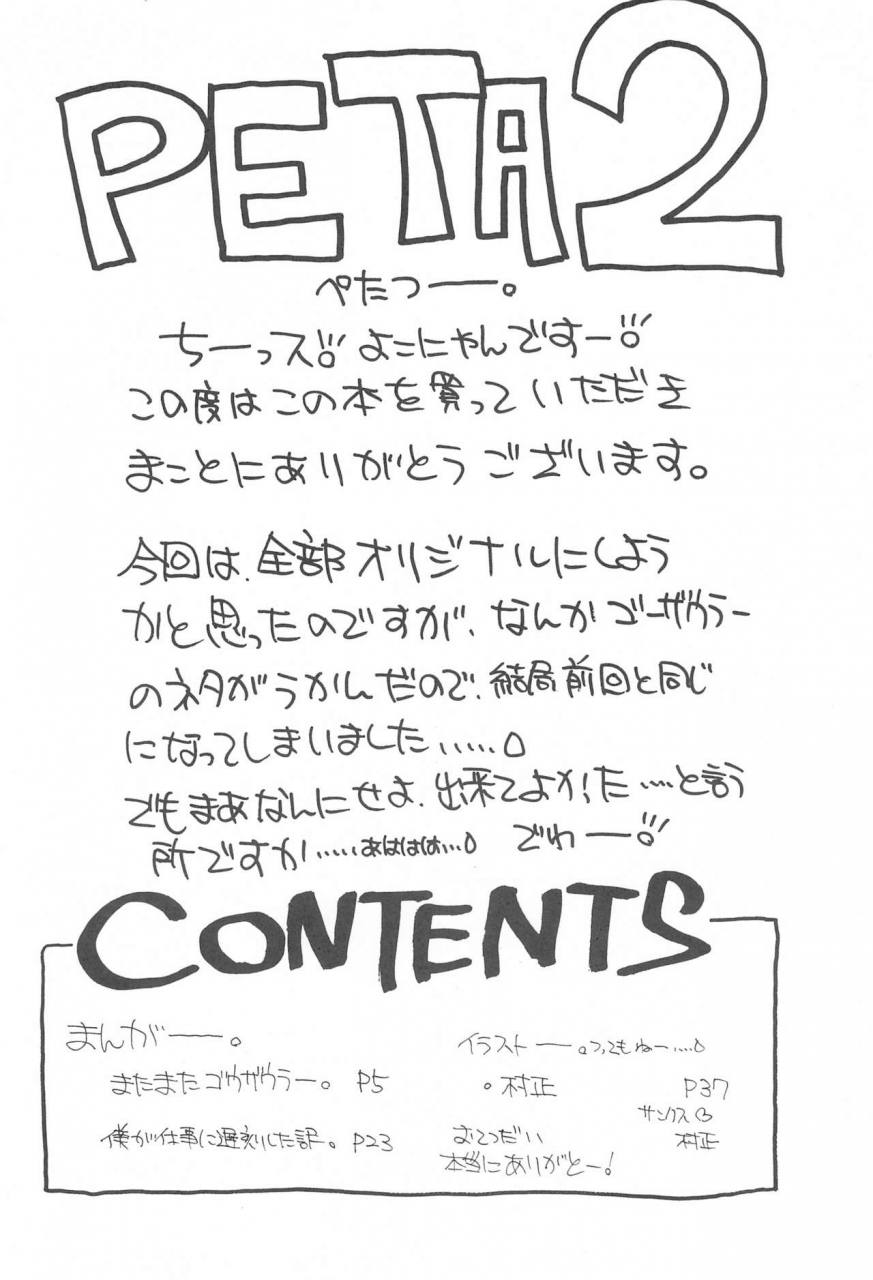 PETA2
ぺたつー。
ちーっス!! よこにゃんですー!!
この度はこの本を買っていただき
まことにありがとうございます。
今回は、全部オリジナルにしよう
かと思ったのですが、なんかゴーザウラー
のネタがうかんだので、結局前回と同じ
になってしまいました……。
でもまあなんにせよ、出来てよかった……と言う
所ですか……あははは…。 でわー!!
CONTENTS
まんがー。
またまたゴウザウラー。 P5
僕が仕事に遅刻した訳。 P23
イラストー。つってもねー……。
。村正 P37
サンクス
村正
おてつだい
本当にありがとー!